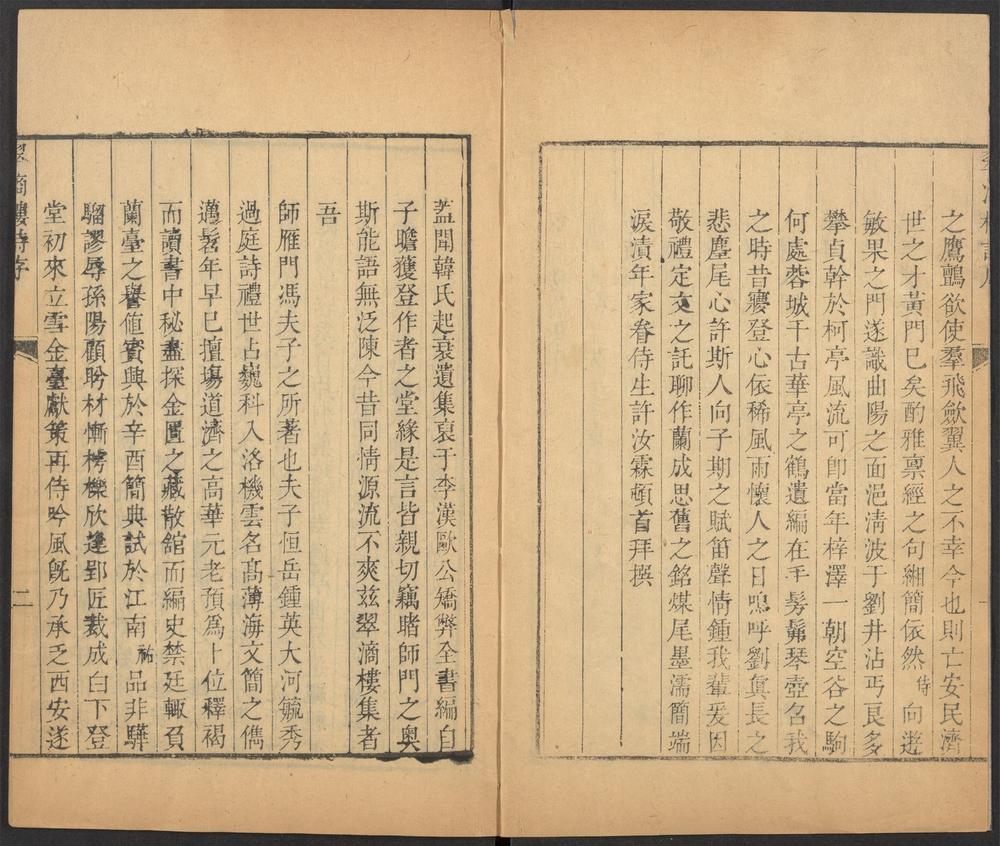 之鷹鸇欲使羣飛歛翼人之不幸今也則亡安民濟
世之才黃門已矣酌雅稟經之句緗簡依然侍向遊
敏果之門遂識曲陽之面浥淸波于劉井沾丐良多
攀貞幹於柯亭風流可卽當年梓澤一朝空谷之駒
何處蓉城千古華亭之鶴遺編在手髣髴琴壺名我
之時昔寢登心依稀風雨懷人之日嗚呼劉眞長之
悲塵尾心許斯人向子期之賦笛聲情鍾我輩爰因
敬禮定文之託聊作蘭成思舊之銘煤尾墨濡簡端
淚漬年家眷侍生許汝霖頓首拜撰
蓋聞韓氏起衰遺集裒于李漢歐公矯弊全書編自
子瞻獲登作者之堂緣是言皆親切竊睹師門之奧
斯能語無泛陳今昔同情源流不爽茲翠滴樓集者
吾
師雁門馮夫子之所著也夫子恒岳鍾英大河毓秀
過庭詩禮世占巍科入洛機雲名高薄海文簡之儁
邁髫年早已擅場道濟之高華元老預爲卜位釋褐
而讀書中秘盡探金匱之藏散舘而編史禁廷輙負
蘭臺之譽値賓興於辛酉簡典試於江南祐品非驊
騮謬辱孫陽顧盻材慚樗櫟欣逢郢匠裁成白下登
堂初來立雪金臺獻策再侍吟風旣乃承乏西安遂
翠滴樓詩序
二